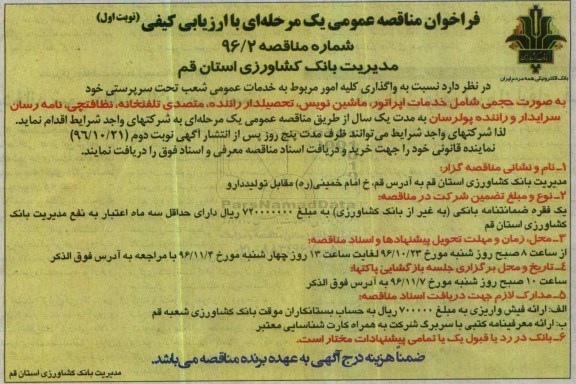 فراخوان مناقصه عمومی یک مرحله‌ای با ارزیابی کیفی (نوبت اول)
شماره مناقصه ۹۶/۲
مدیریت بانک کشاورزی استان قم
بانک کشاورزی
بانکداری الکترونیکی همه مردم ایران
در نظر دارد نسبت به واگذاری کلیه امور مربوط به خدمات عمومی شعب تحت سرپرستی خود
به صورت حجمی شامل خدمات اپراتور، ماشین نویس، تحصیلدار راننده، متصدی تلفنخانه، نظافتچی، نامه رسان
سرایدار و راننده پولرسان به مدت یک سال از طریق مناقصه عمومی یک مرحله‌ای به شرکتهای واجد شرایط اقدام نماید.
لذا شرکتهای واجد شرایط می‌توانند ظرف مدت پنج روز پس از انتشار آگهی نوبت دوم (۹۶/۱۰/۲۱)
نماینده قانونی خود را جهت خرید و دریافت اسناد مناقصه معرفی و اسناد فوق را دریافت نمایند.
۱ـ نام و نشانی مناقصه گزار:
مدیریت بانک کشاورزی استان قم به آدرس قم، خ امام خمینی(ره) مقابل تولیددارو
۲ـ نوع و مبلغ تضمین شرکت در مناقصه:
یک فقره ضمانتنامه بانکی (به غیر از بانک کشاورزی) به مبلغ ۷۲۰۰۰۰۰۰۰ ریال دارای حداقل سه ماه اعتبار به نفع مدیریت بانک
کشاورزی استان قم
۳ـ محل، زمان و مهلت تحویل پیشنهادها و اسناد مناقصه:
از ساعت ۸ صبح روز شنبه مورخ ۹۶/۱۰/۲۳ لغایت ساعت ۱۳ روز چهار شنبه مورخ ۹۶/۱۱/۴ با مراجعه به آدرس فوق الذکر
۴ـ تاریخ و محل برگزاری جلسه بازگشایی پاکتها:
ساعت ۱۰ صبح روز شنبه مورخ ۹۶/۱۱/۷ به آدرس فوق الذکر
۵ـ مدارک لازم جهت دریافت اسناد مناقصه:
الف: ارائه فیش واریزی به مبلغ ۷۰۰۰۰۰ ریال به حساب بستانکاران موقت بانک کشاورزی شعبه قم
ب: ارائه معرفینامه کتبی با سربرگ شرکت به همراه کارت شناسایی معتبر
۶ـ بانک در رد یا قبول یک یا تمامی پیشنهادات مختار است.
ضمناً هزینه درج آگهی به عهده برنده مناقصه می‌باشد.
مدیریت بانک کشاورزی استان قم
ParsNamadData